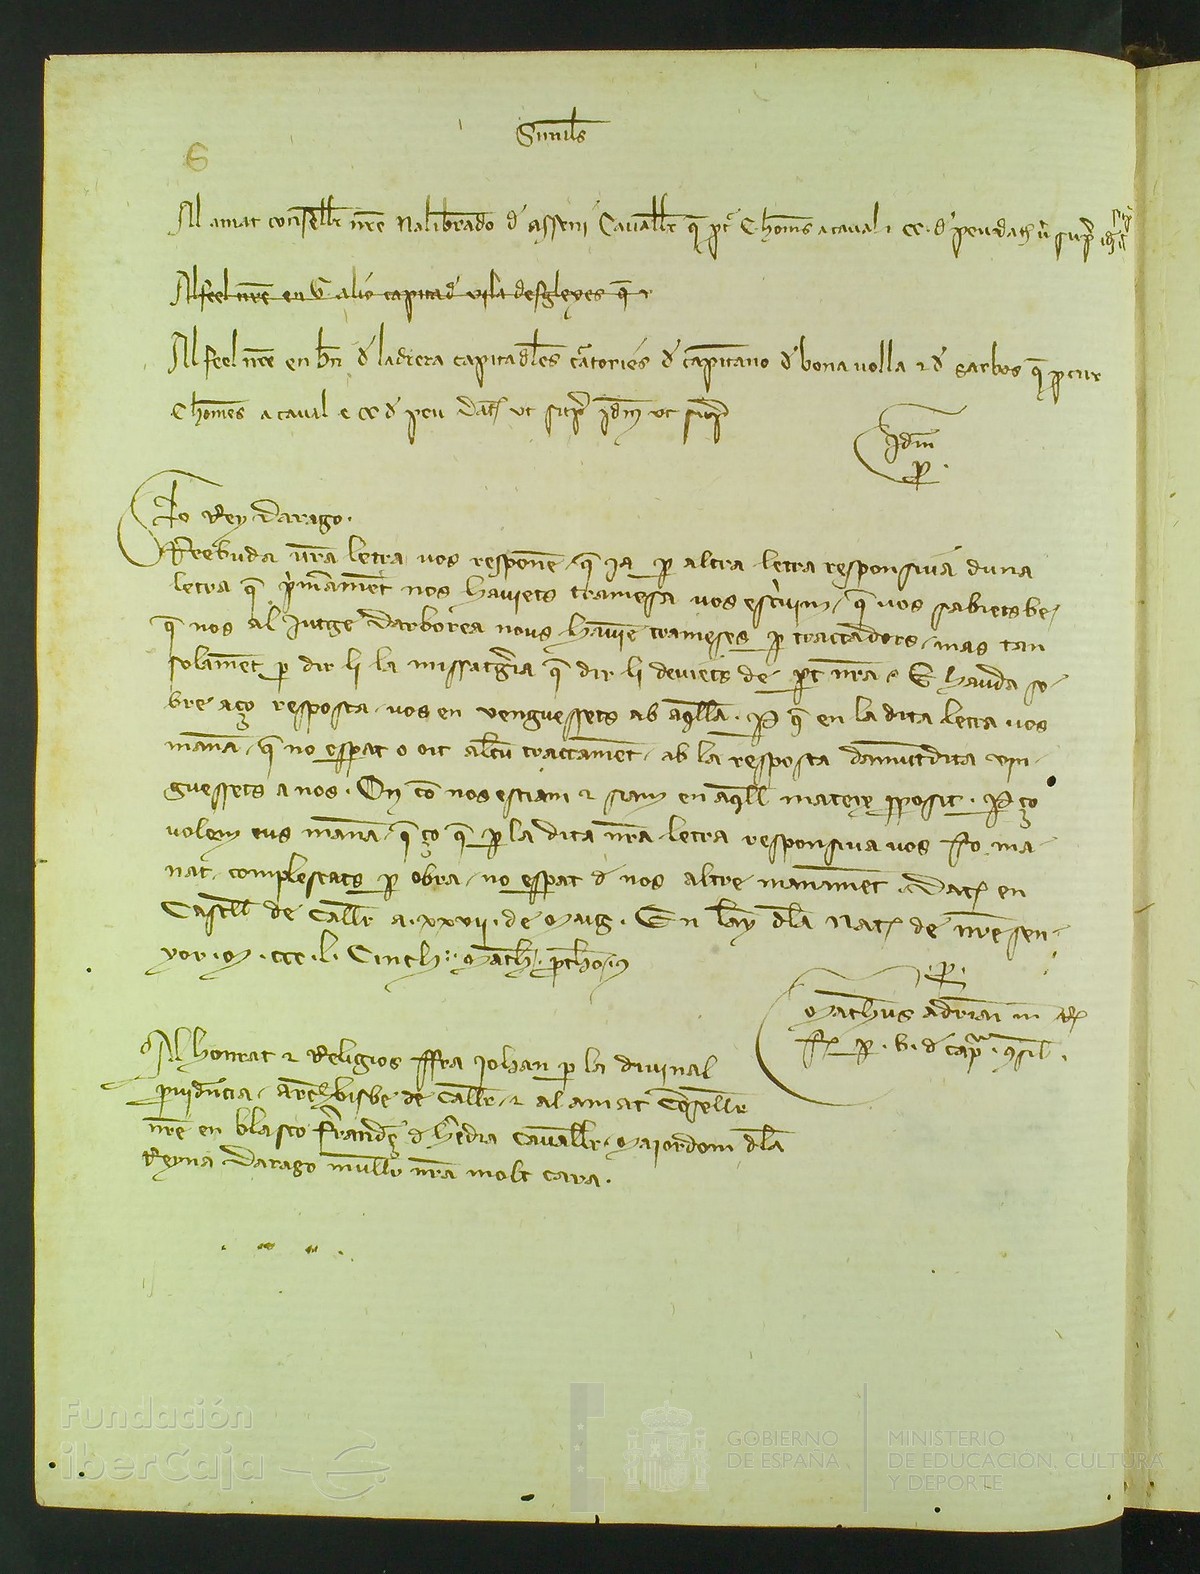 Similes
Al amat conseller nre Nalibrando d Asseni Cavaller q C homens a caval cc d peu dat supr
Al feel nre en G capita d vila desgleyes q
Al feel nre en bn d ladrera capita d d d bona volla d q
C homes a caval e cc d peu dat ut supr Idm ut supr
Idm
p.
Lo Rey Darago.
Rebuda vra letra vos responem q ja p altra letra responsiva duna
letra q primament nos haviets tramesa vos escrivim q vos sabiets be
q nos al Jutge Darborea nous haviem trameses p tractadors mas tan
solament p dir li la missatgria q dir li deviets de part nra E hauda so
bre aço resposta vos en venguessets ab aqlla. P q en la dita letra vos
manam q no esperat o oit altre tractament ab la resposta damuntdita vin
guessets a nos. On com nos estiam e siam en aqll mateix pposit. P ço
volem eus manam q ço q p la dita nra letra responsiva vos fo ma
nat complescats p obra no esperat d nos altre manament. Dat en
Castell de Caller a xxvii de maig. En lany dla Nat de nre Sen
yor M ccc l Cinch. Math pthon
p.
Matheus Adriani m R
f p. G. d Capra consil.
Al honrat e Religios ffra Johan p la divinal
pvidencia Archebisbe de Caller e al amat Conseller
nre en Blasco Ferrandez d Heredia Cavaller Majordom dla
Reyna Darago muller nra molt cara.
Fundación
iberCaja
GOBIERNO
DE ESPAÑA
MINISTERIO
DE EDUCACIÓN, CULTURA
Y DEPORTE